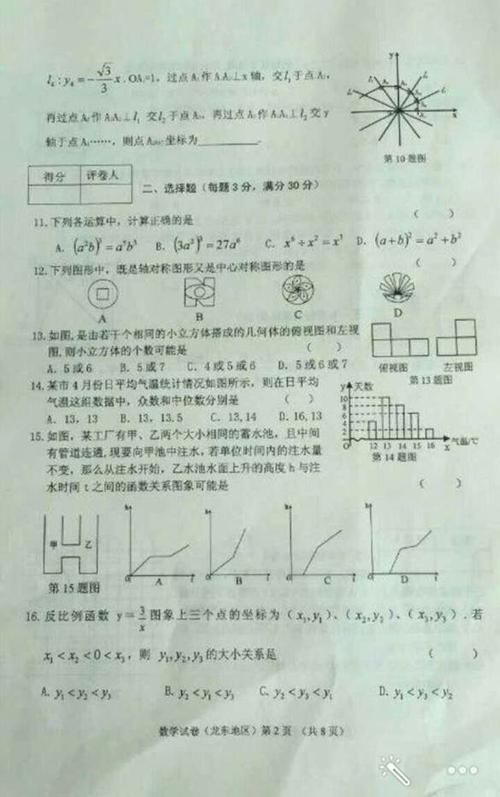 l₄: y₄=-√3/3 x. OA₁=1, 过点A₁作A₁A₂⊥x轴, 交l₁于点A₂,
再过点A₂作A₂A₃⊥l₁交l₂于点A₃, 再过点A₃作A₃A₄⊥l₂交y
轴于点A₄……, 则点A 坐标为
第10题图
得分 评卷人
二、选择题(每题3分, 满分30分)
11. 下列各运算中, 计算正确的是 ( )
A. B. (3a²)³=27a⁶ C. x⁶÷x²=x³ D. (a+b)²=a²+b²
12. 下列图形中, 既是轴对称图形又是中心对称图形的是 ( )
A B C D
13. 如图, 是由若干个相同的小立方体搭成的几何体的俯视图和左视
图, 则小立方体的个数可能是 ( )
A. 5或6 B. 5或7 C. 4或5或6 D. 5或6或7
俯视图 左视图
第13题图
14. 某市4月份日平均气温统计情况如图所示, 则在日平均
气温这组数据中, 众数和中位数分别是 ( )
A. 13, 13 B. 13, 13.5 C. 13, 14 D. 16, 13
天数
10
8
6
4
2
12 13 14 15 16 气温/℃
x
第14题图
15. 如图, 某工厂有甲、乙两个大小相同的蓄水池, 且中间
有管道连通, 现要向甲池中注水, 若单位时间内的注水量
不变, 那么从注水开始, 乙水池水面上升的高度h与注
水时间t之间的函数关系图象可能是 ( )
甲 乙
第15题图
h h h h
t t t t
A B C D
16. 反比例函数 y=3/x 图象上三个点的坐标为 (x₁,y₁)、(x₂,y₂)、(x₃,y₃). 若
x₁<x₂<0<x₃, 则 y₁,y₂,y₃的大小关系是 ( )
A. y₁<y₂<y₃ B. y₂<y₁<y₃ C. y₂<y₃<y₁ D. y₁<y₃<y₂
数学试卷(龙东地区)第2页 (共8页)